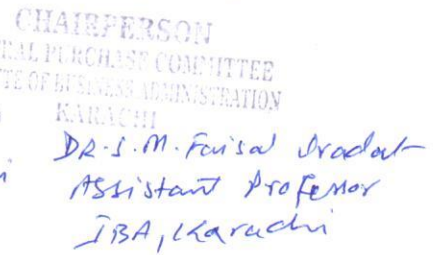 CHAIRPERSON
RAL PURCHASE COMMITTEE
TE OF BUSINESS ADMINISTRATION
KARACHI
DR. S. M. Faisal Iradat
Assistant Professor
IBA, Karachi